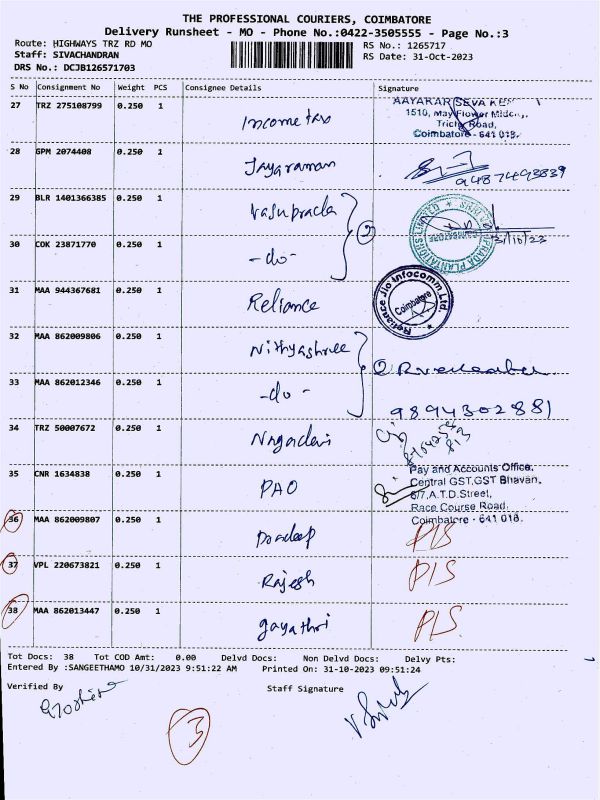 THE PROFESSIONAL COURIERS, COIMBATORE
Delivery Runsheet - MO - Phone No.:0422-3505555 - Page No.:3
Route: HIGHWAYS TRZ RD MO
RS No.: 1265717
Staff: SIVACHANDRAN
RS Date: 31-Oct-2023
DRS No.: DCJB126571703
S No Consignment No Weight PCS Consignee Details Signature
27 TRZ 275108799 0.250 1 Income tax
AAYAKAR SEVA
1510, May Flower
Trichy Road,
Coimbatore - 641 018.
28 GPM 2074408 0.250 1 Jayaraman
9487493839
29 BLR 1401366385 0.250 1 Vasuprada
2
COIMBATORE
31/10/23
30 COK 23871770 0.250 1 -do-
31 MAA 944367681 0.250 1 Reliance
Reliance Jio Infocomm Ltd.
Coimbatore
32 MAA 862009806 0.250 1 Nithyashree
2
33 MAA 862012346 0.250 1 -do-
9894302881
34 TRZ 50007672 0.250 1 Nagadevi
35 CNR 1634838 0.250 1 PAO
Pay and Accounts Office.
Central GST,GST Bhavan,
6/7,A.T.D.Street,
Race Course Road,
Coimbatore - 641 018.
36 MAA 862009807 0.250 1 Pradeep P/S
37 VPL 220673821 0.250 1 Rajesh P/S
38 MAA 862013447 0.250 1 Gayathri P/S
Tot Docs: 38 Tot COD Amt: 0.00 Delvd Docs: Non Delvd Docs: Delvy Pts:
Entered By :SANGEETHAMO 10/31/2023 9:51:22 AM Printed On: 31-10-2023 09:51:24
Verified By Staff Signature
3